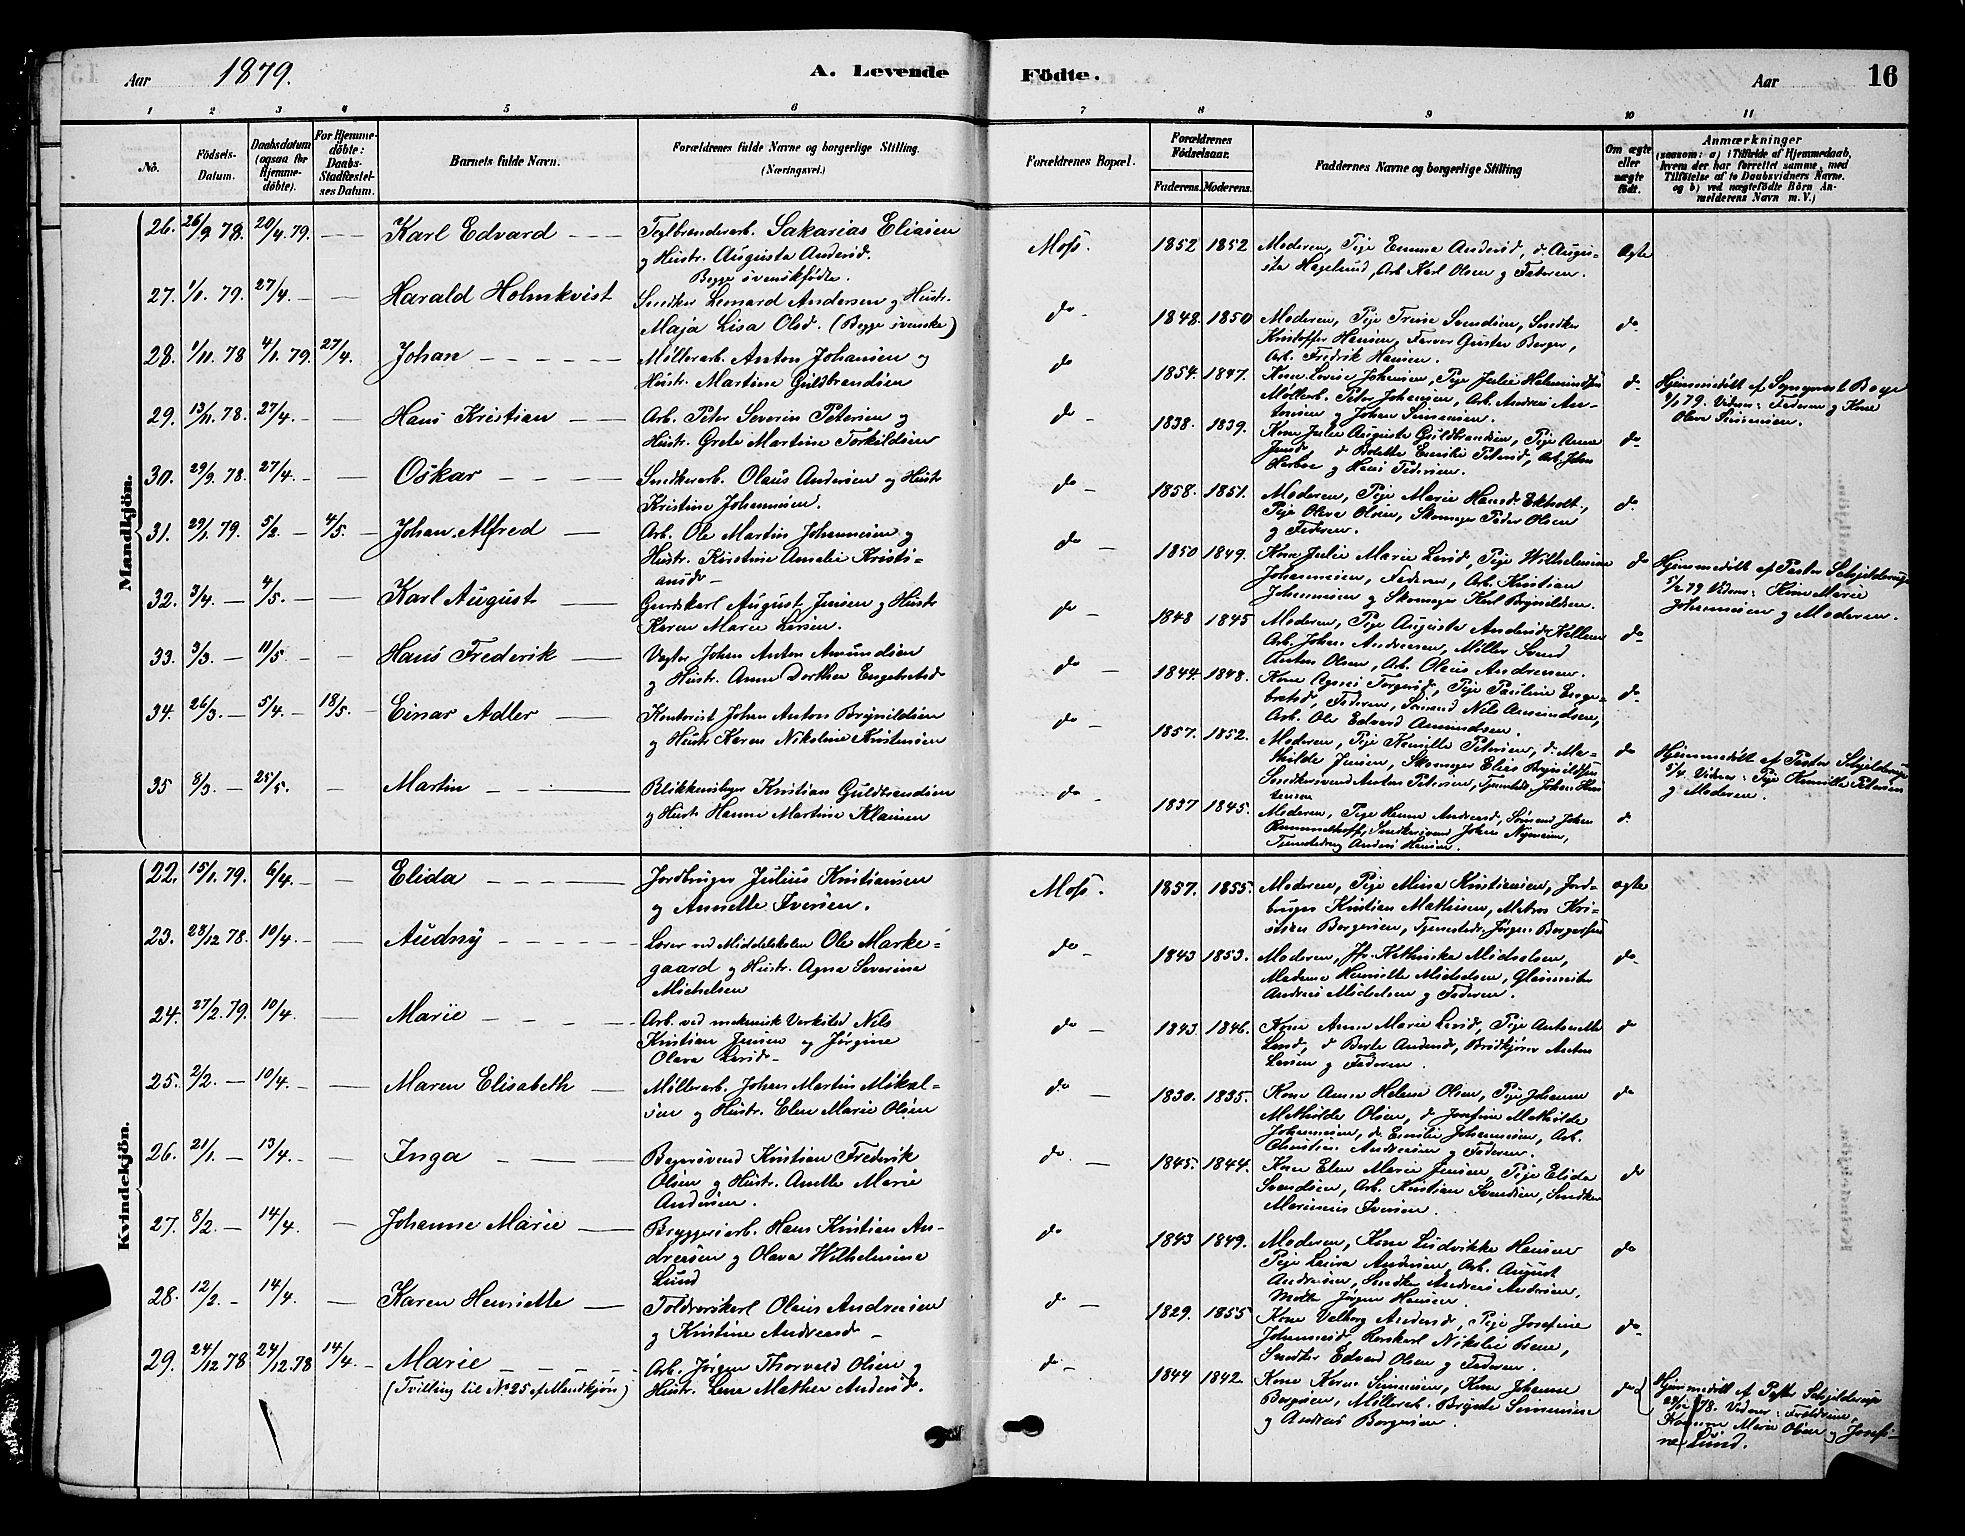 Aar 1879.
A. Levende
Födte.
Aar
16
1 2 3 4 5 6 7 8 9 10 11
No.
Födsels-
Datum.
Daabsdatum
(ogsaa for
Hjemme-
döbte).
For Hjemme-
döbte:
Daabs-
Stadfæstel-
ses Datum.
Barnets fulde Navn.
Forældrenes fulde Navne og borgerlige Stilling.
(Næringsvei.)
Forældrenes Bopæl.
Forældrenes
Födselsaar.
Faderens. Moderens.
Faddernes Navne og borgerlige Stilling
Om ægte
eller
uægte
født.
Anmærkninger
(saasom: a) i Tilfælde af Hjemmedaab,
hvem der har forrettet samme, med
Tilføielse af to Daabsvidners Navne.
og b) ved uægtefödte Börn An-
melderens Navn m. V.)
Mandkjön.
26. 26/9 78. 20/4 79. — Karl Edvard — Teglbrænderarb. Sakarias Eliasen
og Hustr. Augusta Andersd.
Begge svenskfödte.
Moss. 1852 1852 Moderen, Pige Emma Andersd, d. Augu-
sta Hagelund, Arb. Karl Olsen og Faderen.
Ægte
27. 1/1. 79. 27/4. — Harald Holmkvist Snedker Lenard Andersen og Hustr.
Maja Lisa Olsd. (Begge svenske)
do - 1848. 1850 Moderen, Pige Trine Svendsen, Snedker
Kristoffer Hansen, Farver Gustav Berger,
Arb. Fredrik Hansen.
do
28. 1/11. 78 4/1. 79. 27/4. Johan - - - - Møllerarb. Anton Johansen og
Hustr. Martine Guldbrandsen
do 1854. 1847. Kone Lovise Johansen, Pige Julie Helmindsen
Møllerarb. Peter Johansen, Arb. Andreas An-
tonsen og Johan Simensen.
do Hjemmedöbt af Sogneprest Boye
4/1 79. Vidner: Faderen og Kone
Olava Simensen.
29. 13/11. 78. 27/4. — Hans Kristian — Arb. Peter Severin Petersen og
Hustr. Grete Martine Torkildsen
do - 1838. 1839. Kone Julie Auguste Guldbrandsen, Pige Anne
Jensd, d Bolette Emilie Petersd, Arb. Johan
Harboe og Hans Pedersen.
do
30. 29/9. 78. 27/4. — Oskar - - - - Snedkerarb. Olaus Andersen og Hustr
Kristine Johannesen.
do — 1858. 1851. Moderen, Pige Marie Hansd Ekholt,
Pige Oleva Olsen, Skomager Peder Olsen
og Faderen.
do
31. 29/1. 79. 5/2. — 4/5. — Johan Alfred — Arb. Ole Martin Johannesen og
Hustr. Kristine Amalie Kristi-
ansd.—
do — 1850 1849. Kone Julie Marie Larsd, Pige Wilhelmine
Johannesen, Faderen, Arb. Kristian
Johannesen og Skomager Karl Brynildsen.
do Hjemmedöbt af Pastor Schjelderup
5/2 79 Vidner: Kone Marie
Johannesen og Moderen.
32. 3/4. — 4/5. — Karl August — Gaardskarl August Jensen og Hustr
Karen Marie Larsen.
do — 1848 1845 Moderen, Pige Augusta Andersd Kallum
Arb. Johan Andreasen, Møller Svend
Anton Olsen, Arb. Olaus Andresen.
do
33. 3/3. — 11/5. — Hans Frederik — Vægter Johan Anton Amundsen
og Hustr. Anne Dorthea Engebretsd
do — 1844. 1848. Kone Agnes Torgersd, Pige Pauline Enge-
bretsd, Faderen, Sømand Nils Amundsen,
Arb. Ole Edvard Amundsen.
do
34. 26/3. — 5/4. — 18/5. Einar Adler — Kontorist Johan Anton Brynildsen
og Hustr Karen Nikoline Kristensen
do — 1857. 1852. Moderen, Pige Kamilla Petersen, d. Ma-
thilde Jensen, Skomager Elias Brynildsen
Snedkersvend Anton Petersen, Tjenested. Johan Kris-
tensen
do Hjemmedöbt af Pastor Schjelderup
5/4. Vidner: Pige Kamilla Petersen
og Moderen.
35 8/3. — 25/5. — Martin — Blikkenslager Kristian Guldbrandsen
og Hustr Hanne Martine Klausen
do — 1837 1845. Moderen, Pige Hanna Andreasd, Sømand Johan
Rummelhoff, Snedkersvend Johan Nyman,
Tjenestedreng Anders Hansen.
d.
Kvindekjön.
22. 15/1. 79. 6/4. — Elida — Jordbruger Julius Kristiansen
og Annette Iversen.
Moss. 1857. 1855. Moderen, Pige Mina Kristiansen, Jord-
bruger Kristian Mathisen, Matros Kri-
stian Borgersen, Tjenested. Jørgen Borgersen
ægte
23. 28/12 78. 10/4. — Audny - - - - Lærer ved Middelskolen Ole Marke-
gaard og Hustr. Agna Severine
Michelsen
do — 1843 1853. Moderen, Jfr. Kathinka Michelsen,
Madame Henriette Michelsen, Glasmester
Andreas Michelsen og Faderen.
do
24. 27/2. 79. 10/4. — Marie - - - - Arb. ved mekanisk Verksted Nils
Kristian Jensen og Jørgine
Olava Larsd.—
do — 1843 1846. Kone Anne Marie Larsd, Pige Antonette
Lund, d Berte Andersd, Brødkjører Anton
Larsen og Faderen.
do
25. 2/2. — 10/4. — Maren Elisabeth — Møllerarb. Johan Martin Mikal-
sen og Hustr. Elen Marie Olsen
do — 1830. 1835. Kone Anne Helene Olsen, Pige Johanne
Mathilde Olsen, d Josefine Mathilde
Johannesen, d. Emilie Johannesen, Arb.
Christian Andresen og Faderen.
do
26. 21/1. — 13/4. — Inga — Bagersvend Kristian Frederik
Olsen og Hustr. Anette Marie
Andersen.
do. — 1845. 1844. Kone Elen Marie Jensen, Pige Elida
Svendsen, Arb. Kristian Svendsen, Snedker
Marinius Iversen.
do
27. 8/2. — 14/4. — Johanne Marie — Bryggeriarb. Hans Kristian An-
dreasen og Olava Wilhelmine
Lund
do 1843 1849. Moderen, Kone Ludvikke Hansen
Pige Laura Andersen, Arb. August
Andresen, Snedker Andreas Andersen,
Jørgen Hansen.
do
28. 12/2. — 14/4. — Karen Henriette — Toldrorskarl Olaus Andreasen
og Kristine Andreasd —
do — 1829. 1855 Kone Valborg Andersd, Pige Josefine
Johannesd, Rorskarl Nikolai Bene,
Snedker Edvard Olsen og Faderen.
do
29. 24/12 78 24/12. 78 14/4. — Marie - - - - Arb. Jørgen Thorvald Olsen og
(Tvilling til No 25 af Mandkjøn) Hustr. Lene Mathea Andersd.
do — 1844 1842. Kone Karen Simensen, Kone Johanne
Borgersen, Møllerarb. Brynte Simensen
og Andreas Borgersen.
do Hjemmedöbt af Pastor Schjelderup
24/12 78. Vidner: Forældrene,
Konerne Marie Olsen og Josefi-
ne Lund.